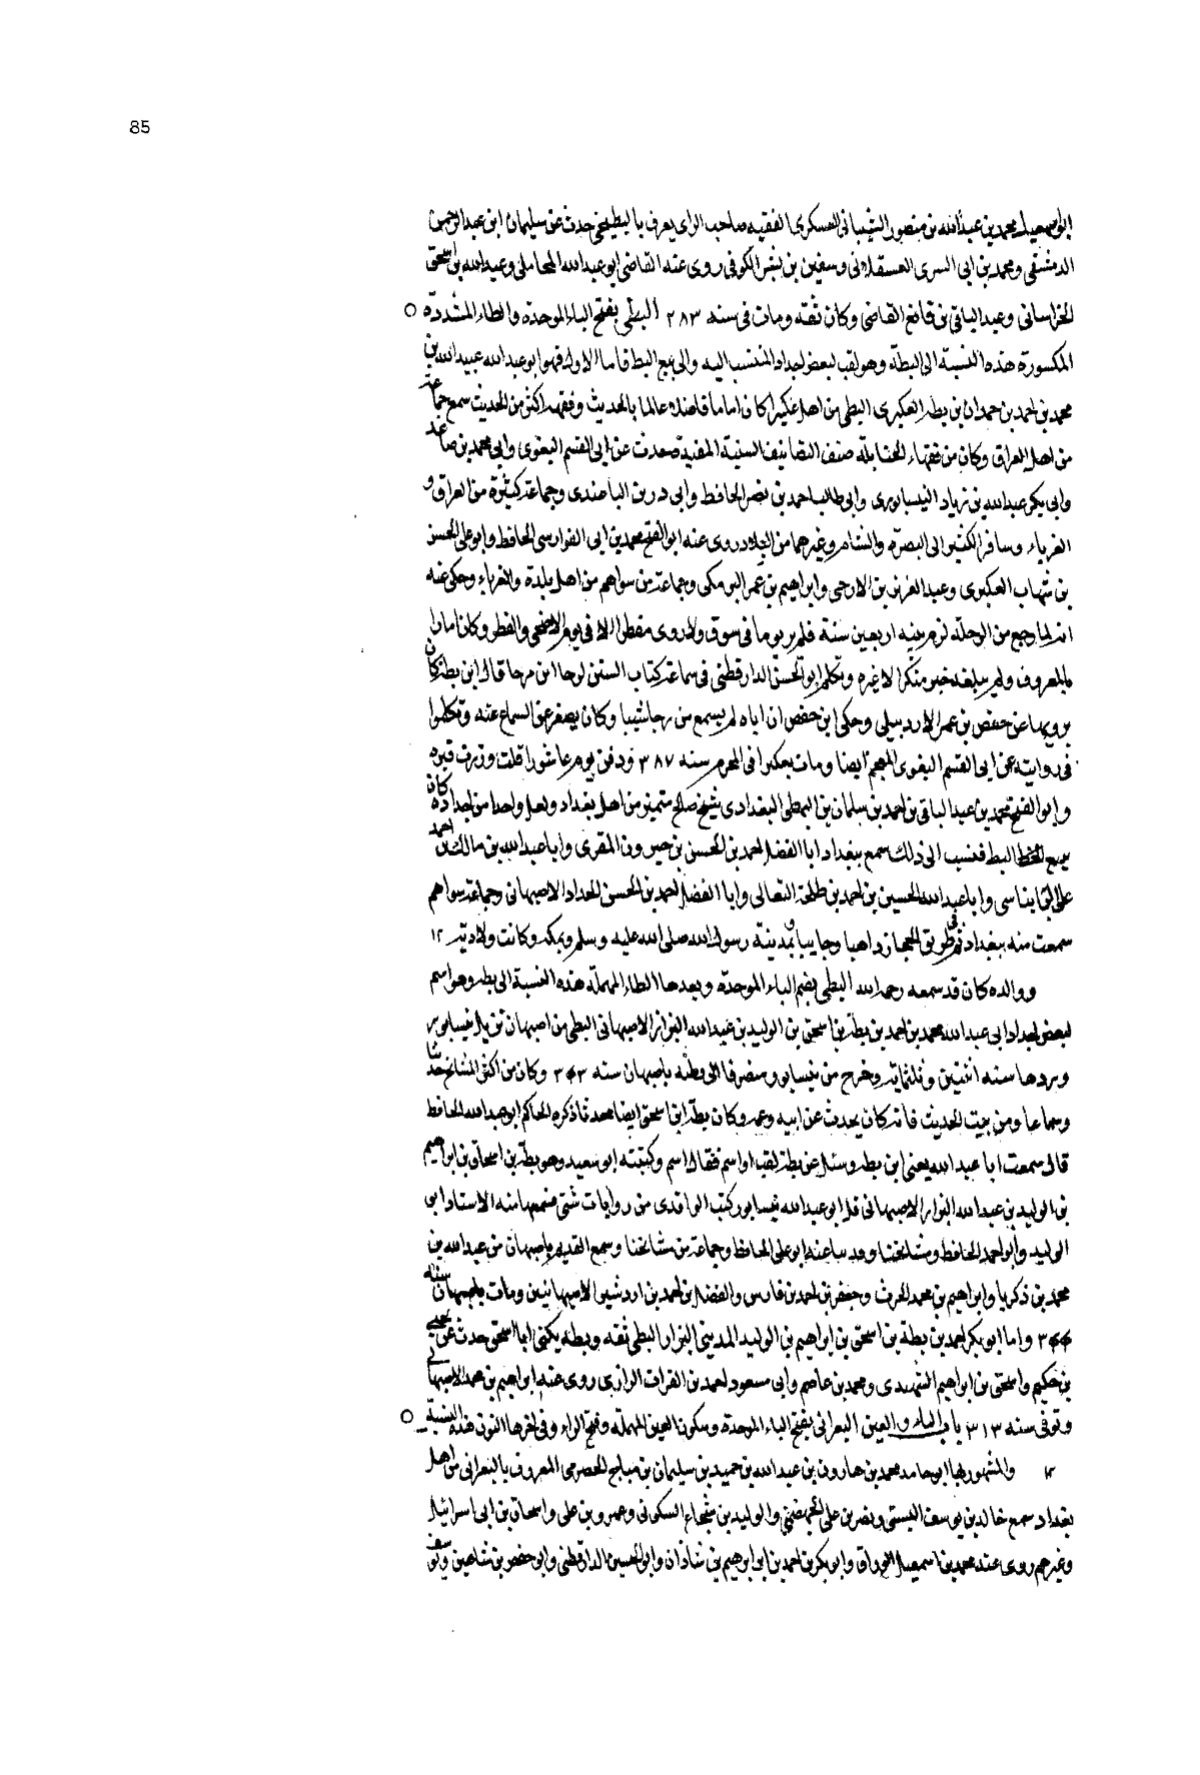 85
ابو اسمعيل محمد بن عبد الله بن منصور الشيبانى العسكرى الفقيه صاحب الراى يعرف بالبطيخى حدث عن سليمان ابن عبد الرحمن
الدمشقى ومحمد بن ابى السرى العسقلانى وسفين بن بشر الكوفى روى عنه القاضى ابو عبد الله المحاملى وعبد الله بن اسحق
الخراسانى وعبد الباقى بن قانع القاضى وكان ثقه ومات فى سنه ٢٨٣ البطى بفتح الباء الموحدة والطاء المشددة
المكسورة هذه النسبة الى البطة وهو لقب لبعض اجداد المنتسب اليه والى بيع البط فاما الاول فهو ابو عبد الله عبيد الله بن
محمد بن احمد بن حمدان بن بطه العكبرى البطى من اهل عكبرا كان اماما فاضلا عالما بالحديث وفقهه اكثر من الحديث سمع جماعة
من اهل العراق وكان من فقهاء الحنابلة صنف التصانيف الحسنة المفيدة حدث عن ابى القسم البغوى وابى محمد بن صاعد
وابى بكر عبد الله بن زياد النيسابورى وابى طالب احمد بن نصر الحافظ وابى ذر بن الباغندى وجماعة كثيرة من العراق و
الغرباء وسافر الكثير الى البصرة والشام وغيرهما من البلاد روى عنه ابو الفتح محمد بن ابى الفوارس الحافظ وابو على الحسن
بن شهاب العكبرى وعبد العزيز بن الازجى وابراهيم بن عمر البرمكى وجماعة من سواهم من اهل بلدة والغرباء وحكى عنه
انه لما رجع من الرحلة لزم بيته اربعين سنة فلم ير يوما فى سوق ولا روى مفطرا الا فى يوم الاضحى والفطر وكان امارا
بالمعروف ولم يبلغه خبر منكر الا غيره وتكلم ابو الحسن الدارقطنى فى سماعه كتاب السنن لرجا ابن مرجا قال ابن بطة كان
يرويها عن حفص بن عمر الاردبيلى وحكى ابن حفص ان اباه لم يسمع من رجا شيبا وكان يصغر عن السماع عنه وتكلموا
فى روايته عن ابى القسم البغوى المعجم ايضا ومات بعكبرا فى المحرم سنه ٣٨٧ ودفن يوم عاشورا قلت وزرت قبره
وابو الفتح محمد بن عبد الباقى بن احمد بن سلمان بن البطى البغدادى شيخ صالح متميز من اهل بغداد ولعل واحدا من اجداده كان
يبيع البط فنسب الى ذلك سمع ببغداد ابا الفضل احمد بن الحسن بن خيرون المقرى وابا عبد الله بن مالك بن احمد
على البانياسى وابا عبد الله الحسين بن احمد بن طلحة النعالى وابا الفضل احمد بن الحسن الحداد الاصبهانى وجماعة سواهم
سمعت منه ببغداد ثم فى طريق الحجاز ذاهبا وجاييا وبمدينة رسول الله صلى الله عليه وسلم وبمكه وكانت ولادته ١٢
ووالده كان قد سمعه رحمه الله البطى بضم الباء الموحدة وبعدها الطاء المهملة هذه النسبة الى بطه وهو اسم
لبعض اجداد ابى عبد الله محمد بن احمد بن بطة بن اسحق بن الوليد بن عبد الله البزاز الاصبهانى البطى من اصبهان نزيل نيسابور
وردها سنه اثنتين وثلثمايه وخرج من نيسابور منصرفا الى وطنه باصبهان سنه ٣٤٣ وكان من اكثر المشايخ حديثا
وسماعا ومن بيت الحديث فانه كان يحدث عن ابيه وعمه وكان بطة ابن اسحق ايضا محدثا ذكره الحاكم ابو عبد الله الحافظ
قال سمعت ابا عبد الله يعنى ابن بطه وسئل عن بطة لقب او اسم فقال اسم وكنيته ابو سعيد وهو بطة بن اسحاق بن ابراهيم
بن الوليد بن عبد الله البزار الاصبهانى قال ابو عبد الله نيسابور كتب الواقدى من روايات شتى فسمعها منه الاستاد ابو
الوليد وابو احمد الحافظ ومشايخنا وحدثنا عنه ابو على الحافظ وجماعة من مشايخنا وسمع القديم باصبهان من عبد الله بن
محمد بن زكريا وابراهيم بن محمد الحرث وجعفر بن احمد بن فارس والفضل بن احمد بن اردشير الاصبهانيين ومات باصبهان سنه
٣٤٤ واما ابو بكر احمد بن بطة بن اسحق بن ابراهيم بن الوليد المدينى البزار البطى ثقه وبطه يكنى ابا اسحق حدث عن يحيى
بن حكيم واسحق بن ابراهيم الشهيدى ومحمد بن عاصم وابى مسعود احمد بن الفرات الرازى روى عنه ابراهيم بن محمد الاصبهانى
وتوفى سنه ٣١٣ باب الباء والعين البعرانى بفتح الباء الموحدة وسكون العين المهملة وفتح الراء وفى اخرها النون هذه النسبة
والمشهور بها ابو حامد محمد بن هارون بن عبد الله بن حميد بن سليمان بن مياح الحضرمى المعروف بالبعرانى من اهل
بغداد سمع خالد بن يوسف السمتى ونصر بن على الجهضمى والوليد بن شجاع السكونى وعمرو بن على واسحاق بن ابى اسرائيل
وغيرهم روى عنه محمد بن اسمعيل الوراق وابو بكر بن احمد بن ابراهيم بن شاذان وابو الحسين الدارقطنى وابو حفص بن شاهين ويوسف